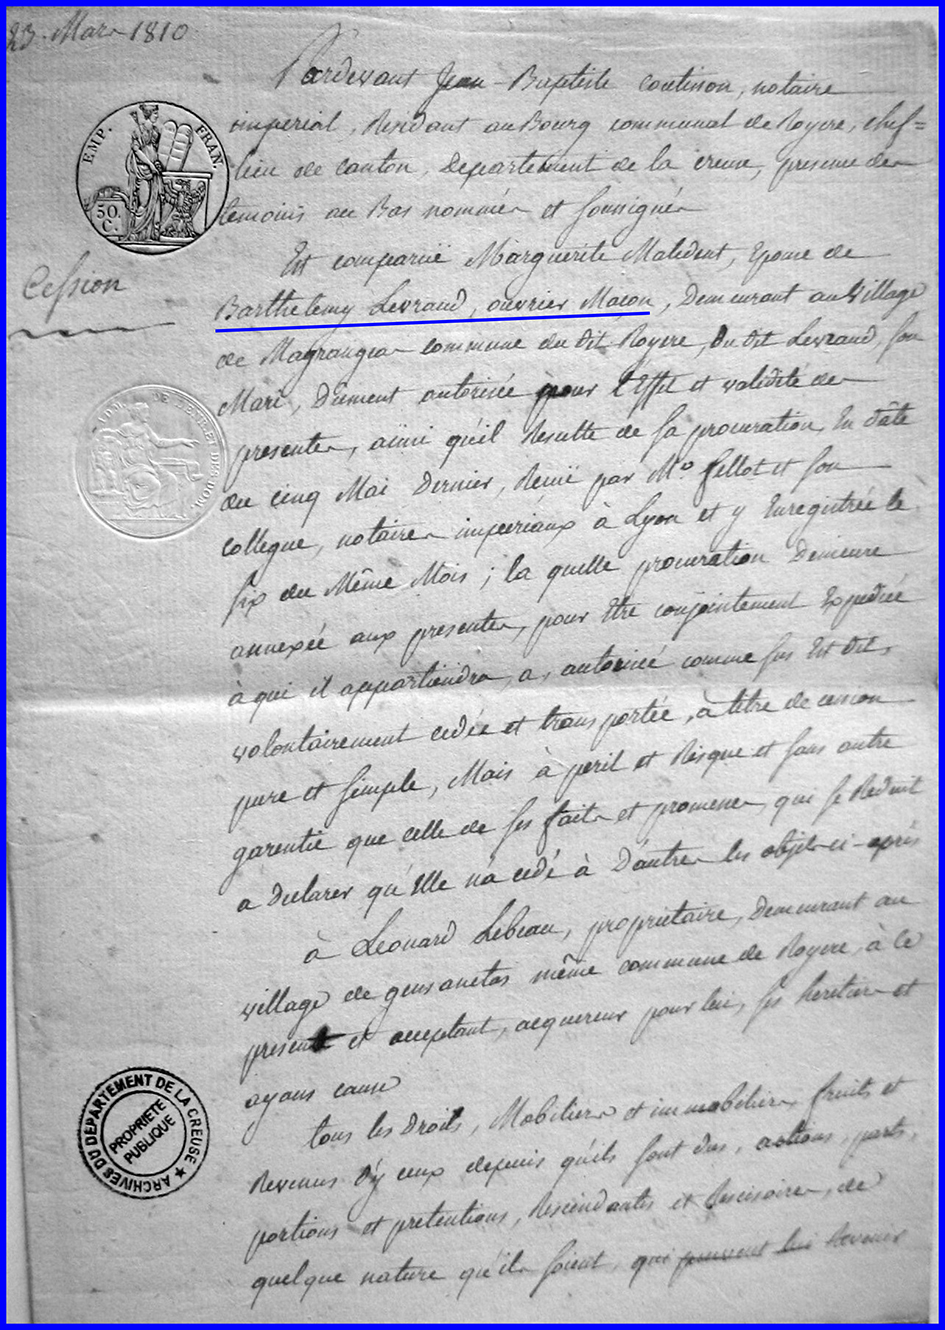 23. Mars 1810
Pardevant Jean-Baptiste coutisson, notaire
imperial, Residant au Bourg communal de Royere, chef=
lieu de canton, Departement de la creuse, presence des
temoins au Bas nommés et soussignés
EMP. FRAN.
50. C.
Cession
Est comparüe Marguerite Malident, Epouse de
Barthelemy Levraud, ouvrier Maçon, Demeurant au village
de Magranges commune du dit Royere, Du dit Levraud, son
Mari, Dûment autorisée pour l'Effet et validité des
presentes, ainsi qu'il Resulte de sa procuration En dâte
du cinq Mai Dernier, Reçüe par Me Gellot et son
collegue, notaires imperiaux à Lyon et y Enregistrée le
six du Même Mois ; la quelle procuration Demeure
annexée aux presentes, pour Etre conjointement Expediée
à qui il appartiendra, a, autorisée comme sus Est dit,
volontairement cedée et transportée, à titre de cession
pure et simple, Mais à peril et Risque et sans autre
garentie que celle de ses faits et promesses, qui se Reduit
a declarer qu'Elle n'a cedé à D'autres les objets ci-après
à Leonard Lebeau, proprietaire, Demeurant au
village de gensanetas même commune de Royere, à ce
present et acceptant, acquereur pour lui, ses heritiers et
ayans cause
tous les Droits, Mobiliers et immobiliers fruits et
Revenus D'y ceux depuis qu'ils sont dus, actions, parts,
portions et pretentions, Rescindantes et Rescisoires, de
quelque nature qu'ils soient, qui peuvent lui Revenir
ARCHIVES DU DÉPARTEMENT DE LA CREUSE
PROPRIETÉ
PUBLIQUE